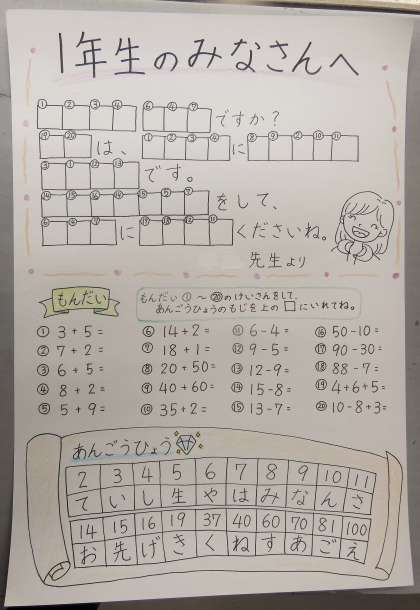 1年生のみなさんへ
① ② ③ ④ ⑥ ④ ⑦ ですか?
は、 ① ② ③ ④ に
です。
をして、
に くださいね。
先生より
もんだい
もんだい ①~⑳のけいさんをして、
あんごうひょうのもじを上の□にいれてね。
① 3+5= ⑥ 14+2= ⑪ 6-4= ⑯ 50-10=
② 7+2= ⑦ 18+1= ⑫ 9-5= ⑰ 90-30=
③ 6+5= ⑧ 20+50= ⑬ 12-9= ⑱ 88-7=
④ 8+2= ⑨ 40+60= ⑭ 15-8= ⑲ 4+6+5=
⑤ 5+9= ⑩ 35+2= ⑮ 13-7= ⑳ 10-8+3=
あんごうひょう
2 3 4 5 6 7 8 9 10 11
て い し 生 や は み な ん さ
14 15 16 19 37 40 60 70 81 100
お 先 げ き く ね す あ ご え